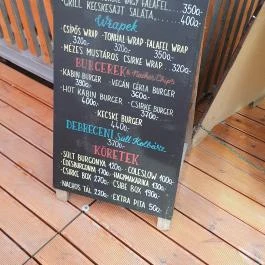 NAGY FALAFEL 350.-
GRILL KECSKESAJT SALÁTA... 400.-
Wrapek
CSÍPŐS WRAP · TONHAL WRAP · FALAFEL WRAP
320.- 380.- 320.-
· MÉZES MUSTÁROS CSIRKE WRAP 320.-
BURGEREK & Nachos Chips
· KABIN BURGER · VEGÁN CÉKLA BURGER
390.- 360.-
· HOT KABIN BURGER · CSIRKE BURGER
400.- 370.-
· KECSKE BURGER
440.-
DEBRECENI Sült Kolbász
370.-
KÖRETEK
· SÜLT BURGONYA 120.- COLESLOW 100.-
· ÉDESBURGONYA 170.- HAGYMAKARIKA 130.-
· CSIRKE BOX 270.- CSIBI BOX 190.-
· NACHOS TÁL 220.- EXTRA PITA 50.-